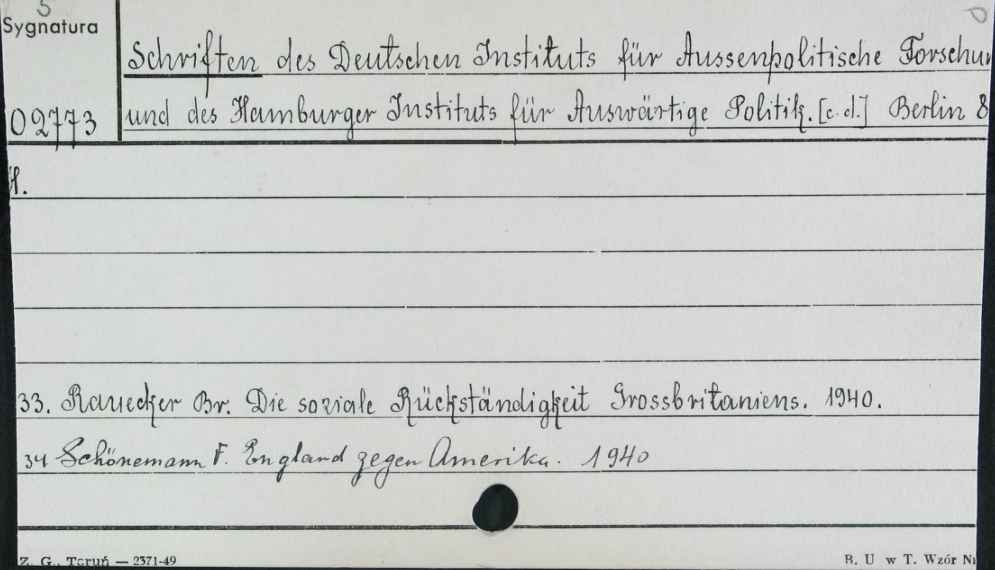 S
Sygnatura
Schriften des Deutschen Instituts für Aussenpolitische Forschu
02773
und des Hamburger Instituts für Auswärtige Politik. [c.d.] Berlin 8
H.
33. Rauecker Br. Die soziale Rückständigkeit Grossbritaniens. 1940.
34 Schönemann F. England gegen Amerika. 1940
Z. G., Toruń — 2371-49
B. U w T. Wzór N